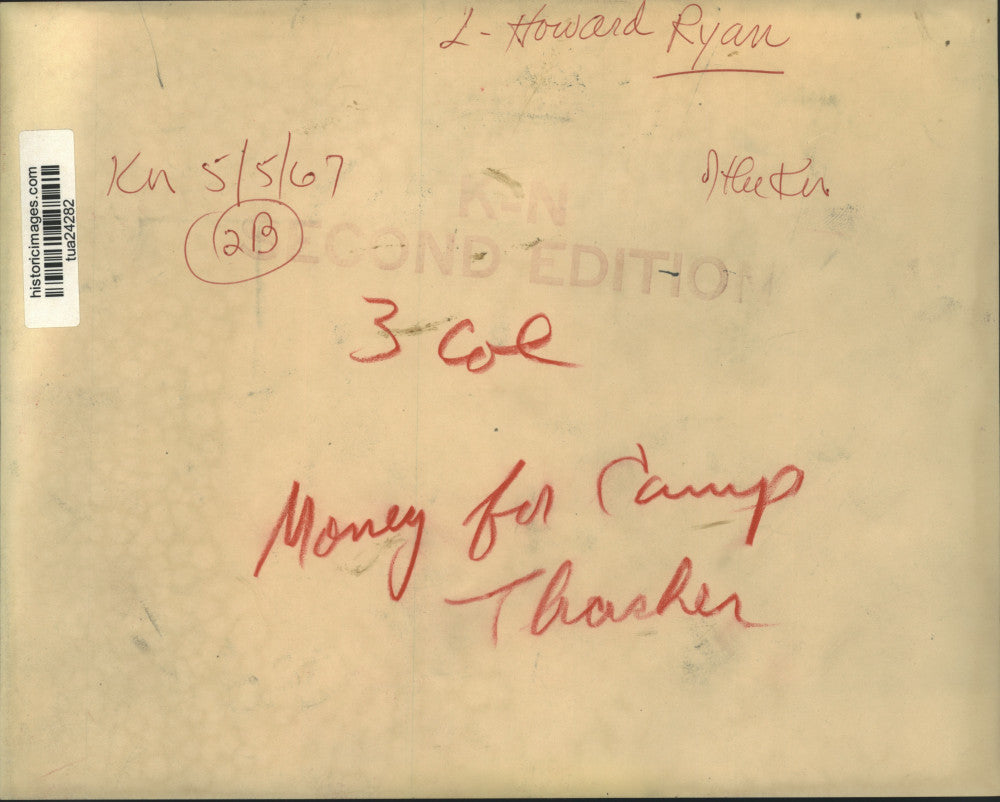 L - Howard Ryan
Kn 5/5/67
2B
K-N
SECOND EDITION
3 Col
Money for Camp
Thrasher
historicimages.com
tua24282